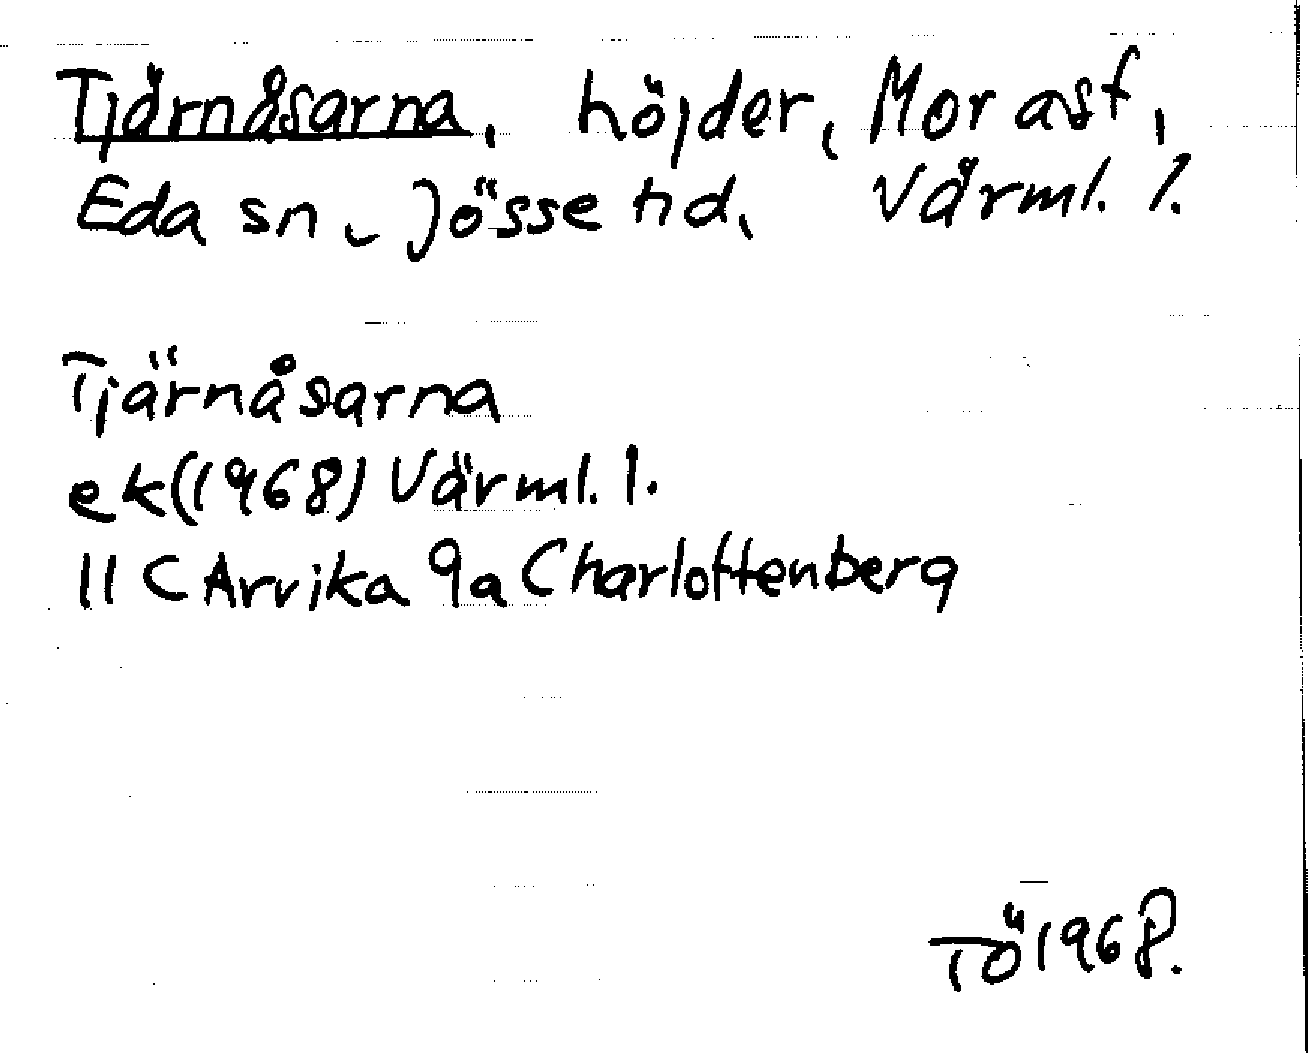 Tjärnåsarna, höjder, Morast,
Eda sn, Jösse hd, Värml. l.
Tjärnåsarna
ek(1968) Värml. l.
11 C Arvika 9a Charlottenberg
TÖ 1968.